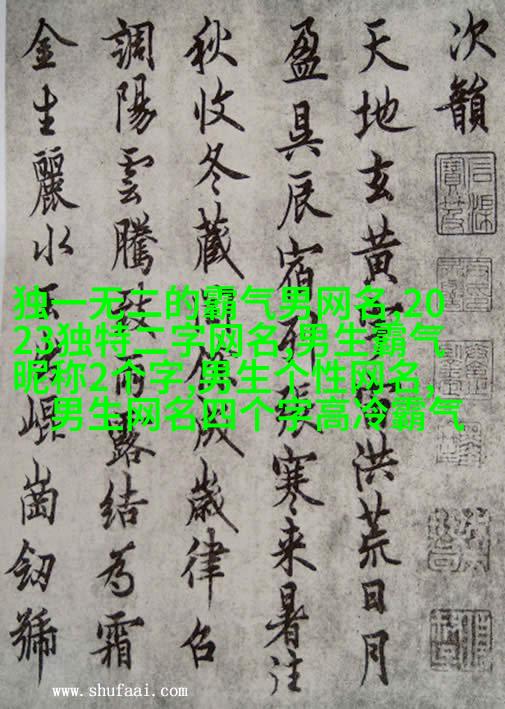 次韻
天地玄黄洪荒日月
盈昃辰宿列張寒来暑往
秋收冬藏閏餘成歲律召
調陽雲騰致雨露結為霜
金生麗水玉出崐崗劒號
独一无二的霸气男网名,20
23独特二字网名,男生霸气
昵称2个字,男生个性网名,
男生网名四个字高冷霸气
www.shufaai.com